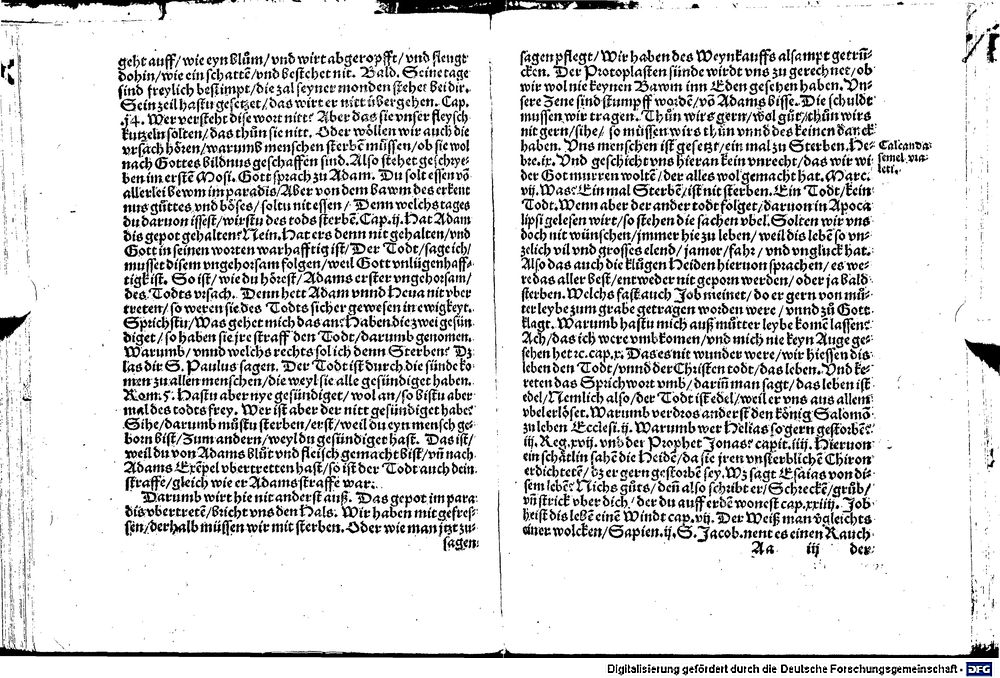 geht auff/ wie eyn blům/ vnd wirt abgeropfft/ vnd fleugt
dohin/ wie ein schattē/ vnd bestehet nit. Bald. Seine tage
sind freylich bestimpt/ die zal seyner monden stehet bei dir.
Sein zeil hastu gesetzet/ das wirt er nitt übergehen. Cap.
.14. Wer versteht dise wort nitt? Aber das sie vnser fleysch
kutzeln solten/ das thůn sie nitt. Oder wöllen wir auch die
vrsach hören/ warumb menschen sterbē müssen/ ob sie wol
nach Gottes bildnus geschaffen sind. Also stehet geschrye-
ben im erstē Mosi. Gott sprach zu Adam. Du solt essen vō
allerlei bewm im paradis/ Aber von dem bawm des erkent
nus gůttes vnd böses/ soltu nit essen/ Denn welchs tages
du daruon issest/ wirstu des tods sterbē. Cap. ij. Hat Adam
dis gepot gehalten? Nein. Hat ers denn nit gehalten/ vnd
Gott in seinen worten warhafftig ist/ Der Todt/ sage ich/
musset disem vngehorsam folgen/ weil Gott vnlügenhaff-
tigk ist. So ist/ wie du hörest/ Adams erster vngehorsam/
des Todts vrsach. Denn hett Adam vnnd Heua nit vber
treten/ so weren sie des Todts sicher gewesen in ewigkeyt.
Sprichstu/ Was gehet mich das an? Haben die zwei gesün
diget/ so haben sie jre straff den Todt/ darumb genomen.
Warumb/ vnnd welchs rechts sol ich denn Sterben? Dz
las dir S. Paulus sagen. Der Todt ist durch die sünde ko
men zu allen menschen/ die weyl sie alle gesündiget haben.
Rom. 5. Hastu aber nye gesündiget/ wol an/ so bistu aber
mal des todts frey. Wer ist aber der nitt gesündiget habe?
Sihe/ darumb můstu sterben/ erst/ weil du eyn mensch ge-
born bist/ Zum andern/ weyl du gesündiget hast. Das ist/
weil du von Adams blůt vnd fleisch gemacht bist/ vň nach
Adams Exēpel vbertretten hast/ so ist der Todt auch dein
straffe/ gleich wie er Adams straffe war.
Darumb wirt hie nit anderst auß. Das gepot im para
dis vbertretē/ bricht vns den Hals. Wir haben mit gefres-
sen/ derhalb müssen wir mit sterben. Oder wie man jtzt zu-
sagen
sagen pflegt/ Wir haben des Weynkauffs alsampt getrū-
cken. Der Protoplasten sünde wirdt vns zu gerechnet/ ob
wir wol nie keynen Bawm inn Eden gesehen haben. Vn-
sere Zene sind stumpff wordē/ vō Adams bisse. Die schuldt
mussen wir tragen. Thůn wirs gern/ wol gůt/ thůn wirs
nit gern/ sihe/ so müssen wirs thůn vnnd des keinen danck
haben. Vns menschen ist gesetzt/ ein mal zu Sterben. He-
bre. ix. Vnd geschicht vns hieran kein vnrecht/ das wir wi
der Got murren woltē/ der alles wol gemacht hat. Marc.
vij. Was? Ein mal Sterbē/ ist nit sterben. Ein Todt/ kein
Todt. Wenn aber der ander todt folget/ daruon in Apoca
lipsi gelesen wirt/ so stehen die sachen vbel. Solten wir vns
doch nit wünschen/ jmmer hie zu leben/ weil dis lebē so vn-
zelich vil vnd grosses elend/ jamer/ fahr/ vnd vngluck hat.
Also das auch die klůgen Heiden hieruon sprachen/ es we-
re das aller best/ entweder nit geporn werden/ oder ja bald
sterben. Welchs fast auch Job meinet/ do er gern von mů-
ter leybe zum grabe getragen worden were/ vnnd zů Gott
klagt. Warumb hastu mich auß můtter leybe komē lassen?
Ach/ das ich were vmbkomen/ vnd mich nie keyn Auge ge-
sehen het ꝛc. cap. x. Das es nit wunder were/ wir hiessen dis
leben den Todt/ vnnd der Christen todt/ das leben. Vnd ke-
reten das Sprichwort vmb/ dariň man sagt/ das leben ist
edel/ Nemlich also/ der Todt ist edel/ weil er vns aus allem
vbel erlöset. Warumb verdros anderst den könig Salomō
zu leben Ecclesi. ij. Warumb wer Helias so gern gestorbē?
iij. Reg. xvij. vnd der Prophet Jonas? capit. iiij. Hieruon
ein schätlin sahē die Heidē/ da sie jren vnsterblichē Chiron
erdichtetē/ dz er gern gestorbē sey. Wz sagt Esaias von di-
sem lebē? Nichs gůts/ deň also schribt er/ Schreckē/ grůb/
vň strick vber dich/ der du auff erdē wonest cap. xxiiij. Job
heist dis lebē einē Windt cap. vij. Der Weiß man vgleichts
einer wolcken/ Sapien. ij. S. Jacob. nent es einen Rauch
Aa iij der
Calcanda
semel via
leti.
Digitalisierung gefördert durch die Deutsche Forschungsgemeinschaft - DFG